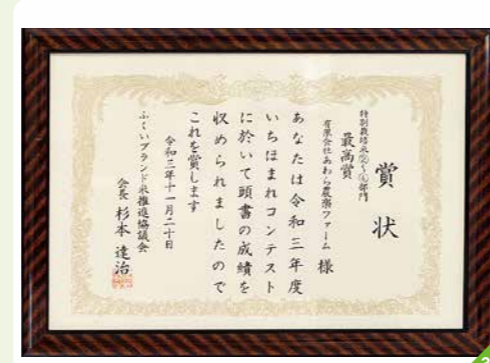 賞状
特別栽培米②〜④部門
最高賞
有限会社あわら農楽ファーム 様
あなたは令和三年度
いちほまれコンテスト
に於いて頭書の成績を
収められましたので
これを賞します
令和三年十一月二十日
ふくいブランド米推進協議会
会長 杉本達治